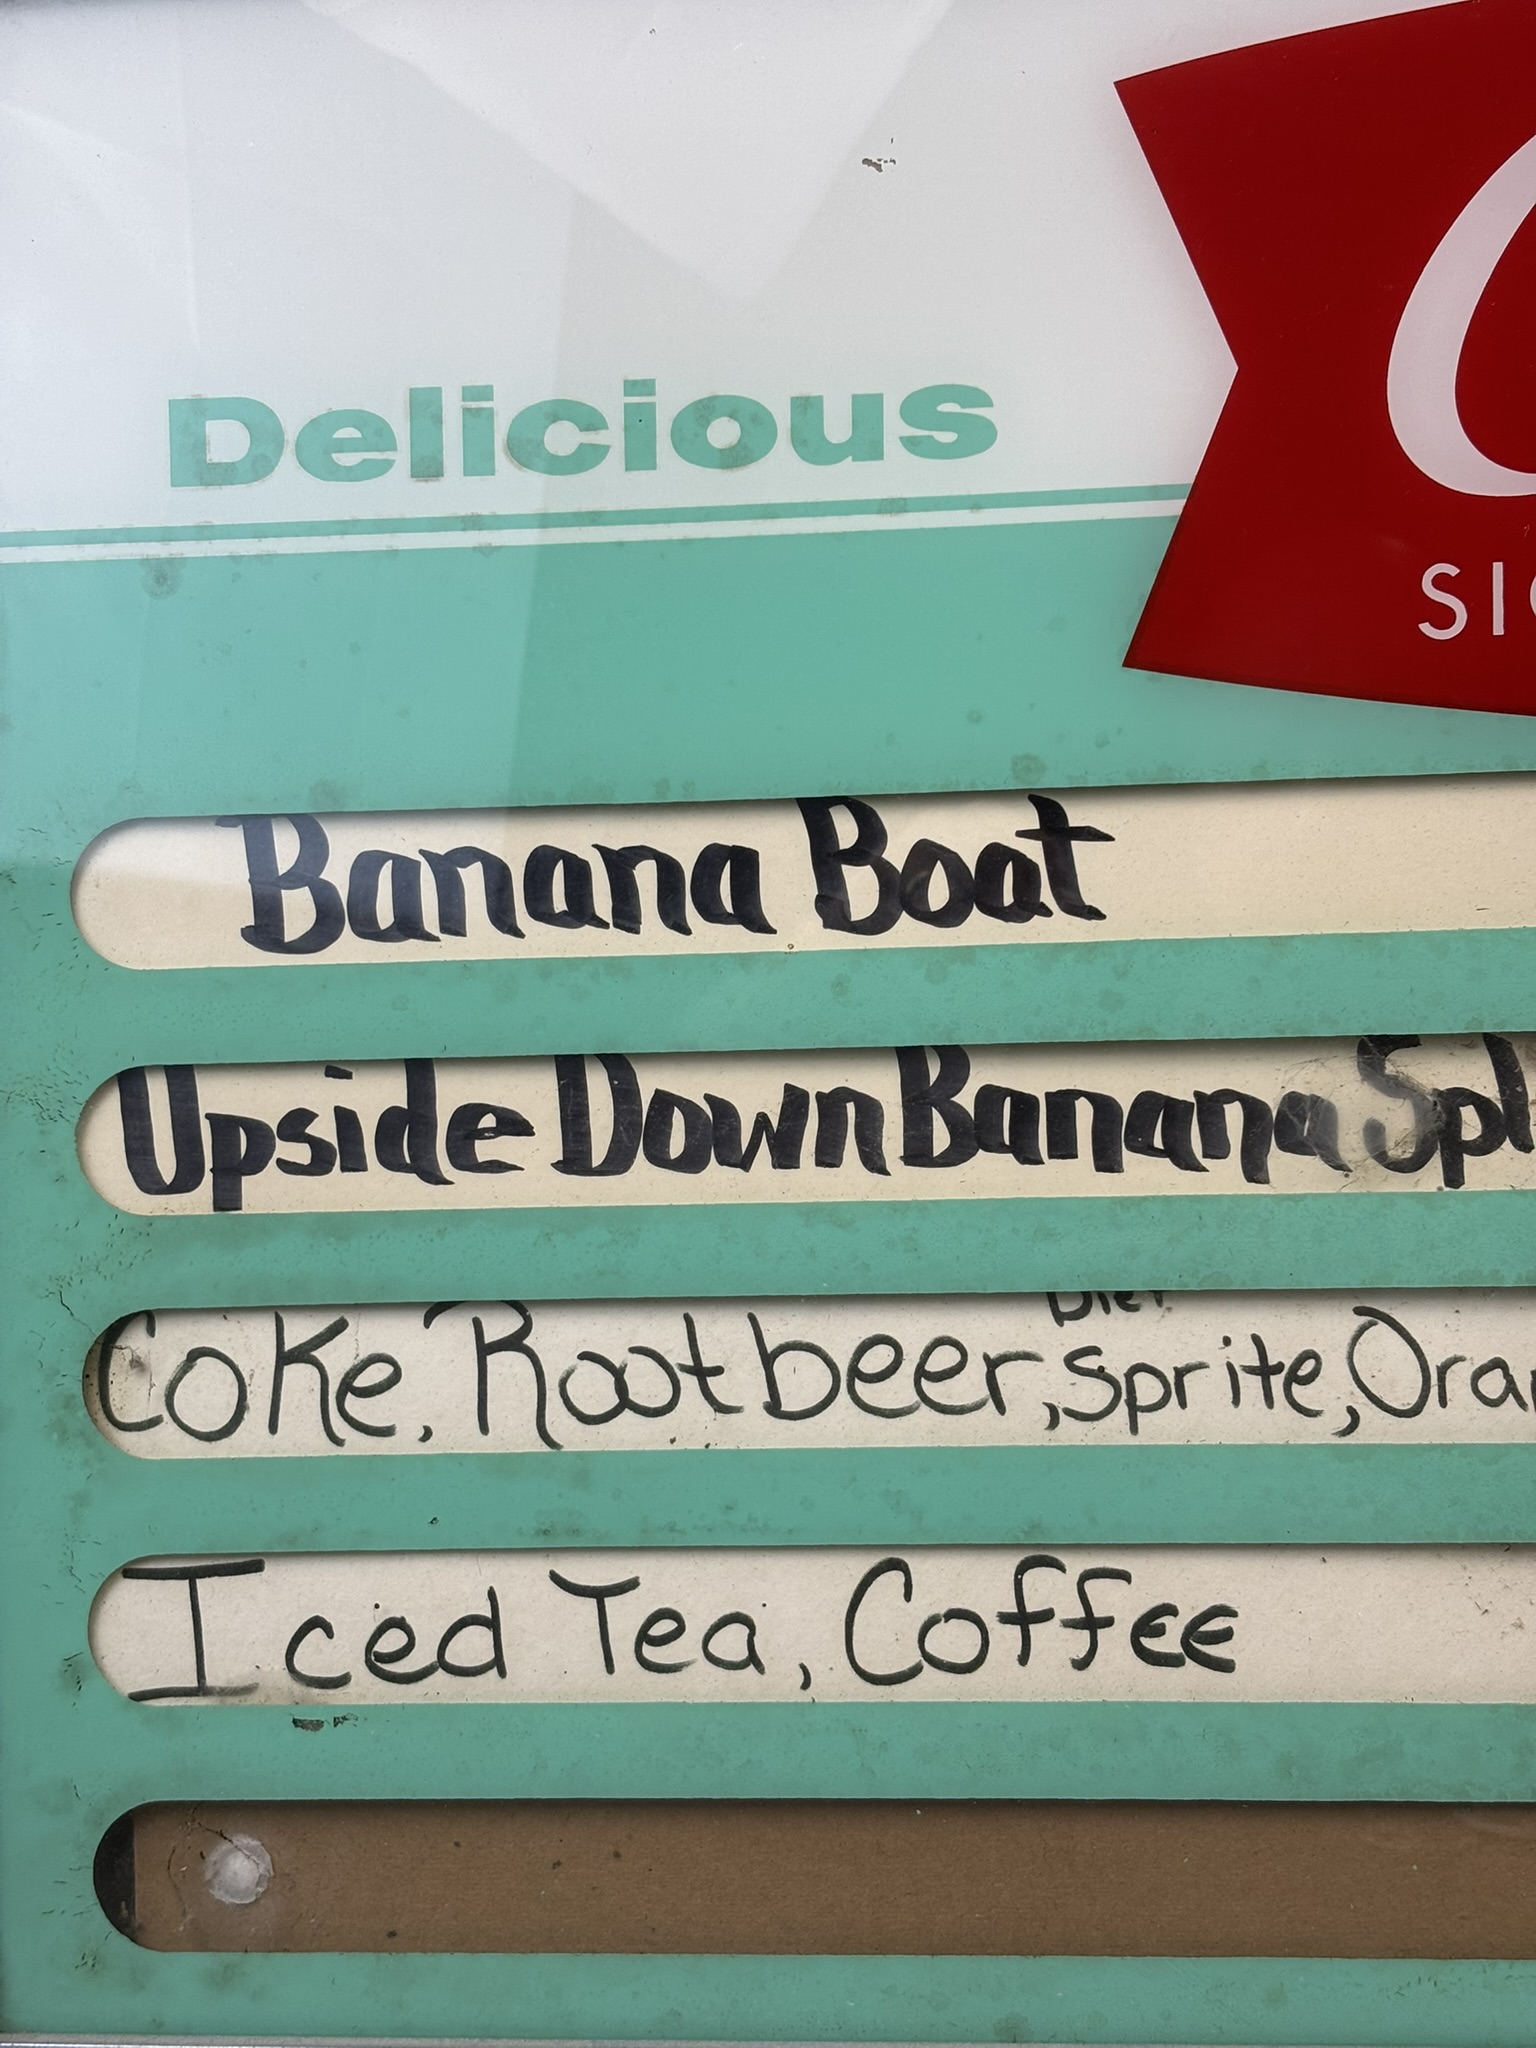 Delicious
SIG
Banana Boat
Upside Down Banana Spl
Diet
Coke, Rootbeer, Sprite, Oran
Iced Tea, Coffee